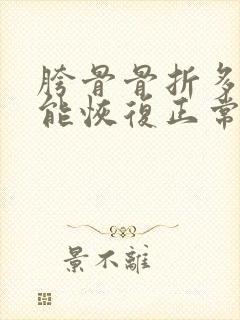 胯骨骨折多
能恢復正常
景不離